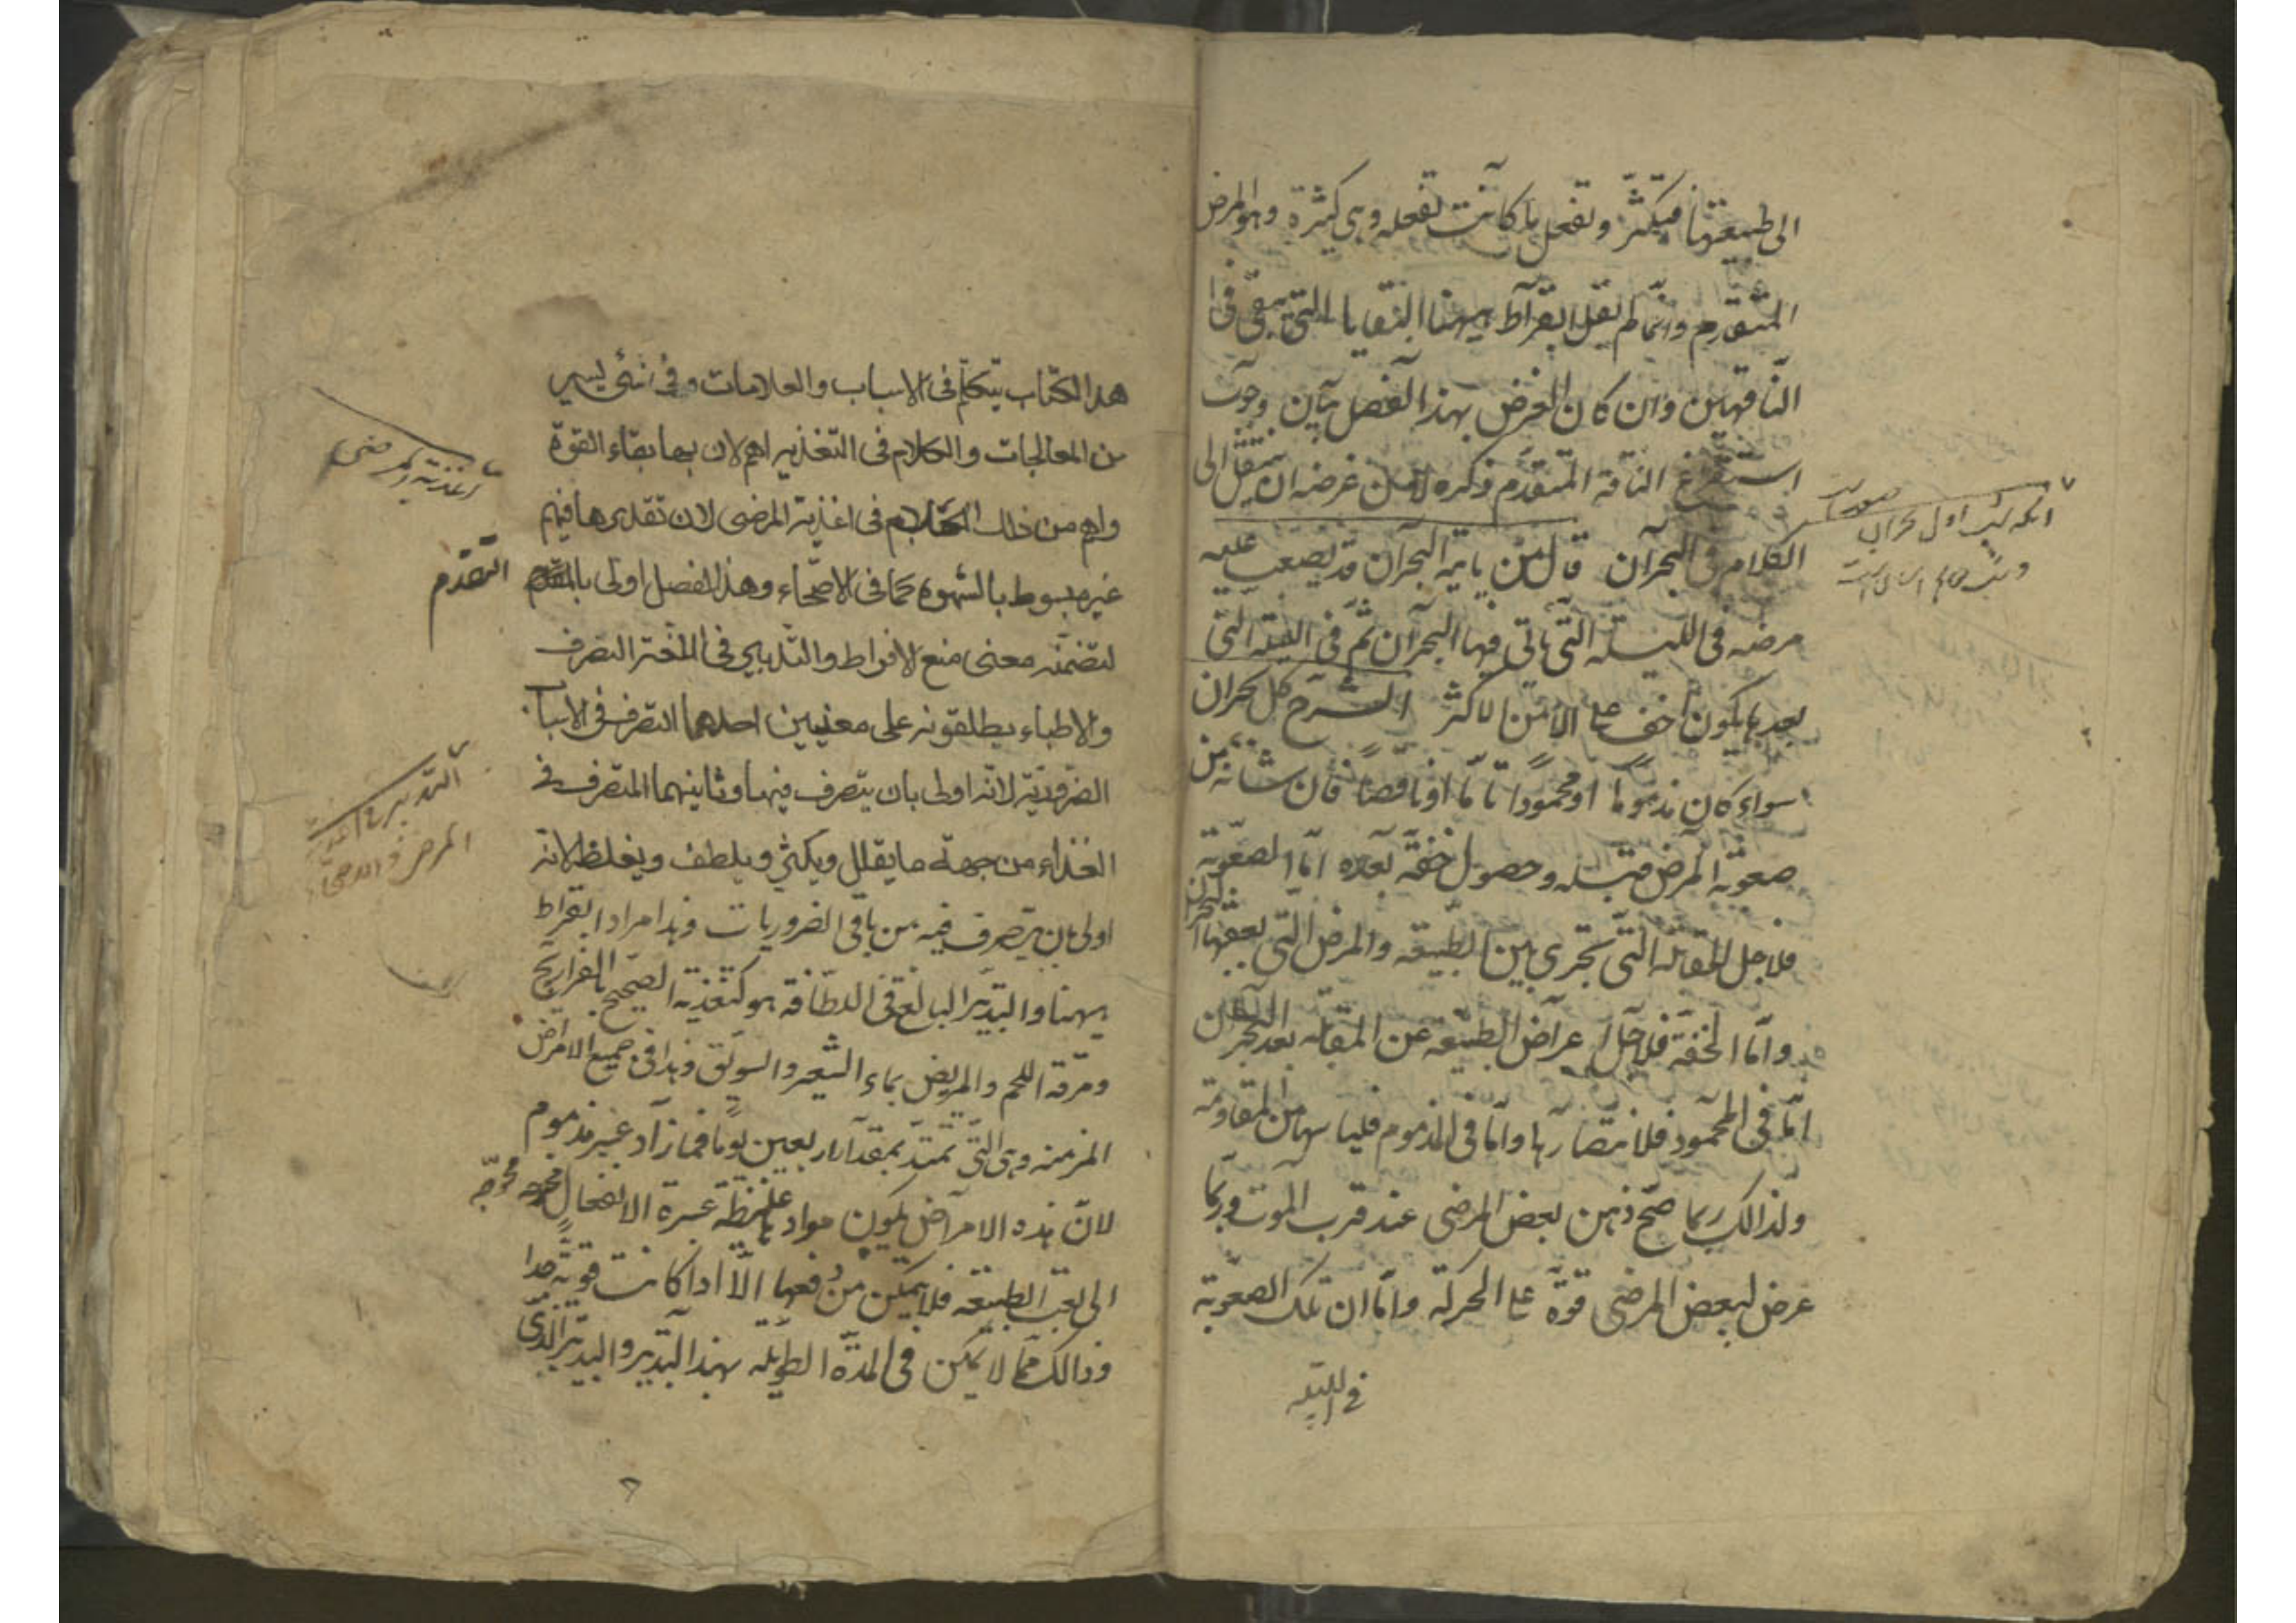 الى طبيعتها فيكثر وتفعل ما كانت تفعله وهى كثيرة وهو المرض
المتقدم وانما لم يقل ابقراط ههنا البقايا التى تبقى فى
الناقهين وان كان الغرض بهذا الفصل بيان وجوب
استفراغ الناقة المتقدم ذكره لان من غرضه ان ينتقل الى
الكلام فى البحران قال من ياتيه البحران قد يصعب عليه
مرضه فى الليلة التى ياتى فيها البحران ثم فى الليلة التى
بعدها يكون اخف على الامر الاكثر الشرح كل بحران
سواء كان مذموما او محمودا تاما او ناقصا فان شانه من
صعوبة المرض قبله وحصول خفة بعده اما الصعوبة
فلاجل المقاتلة التى تجرى بين الطبيعة والمرض التى يعقبها البحران
واما الخفة فلاجل اعراض الطبيعة عن المقاتلة بعد البحران
اما فى المحمود فلانتصارها واما فى المذموم فلياسها من المقاومة
ولذالك ربما صح ذهن بعض المرضى عند قرب الموت وربما
عرض لبعض المرضى قوة على الحركة واما ان تلك الصعوبة
فى الليلة
هذا الكتاب يتكلم فى الاسباب والعلامات وفى شئ يسير
من المعالجات والكلام فى التغذيه اهم لان بها بقاء القوة
واهم من ذلك الكلام فى اغذية المرضى لان تقديرها فيهم
اغذية المرضى
غير مبسوط بالشهوة كما فى الاصحاء وهذا الفصل اولى بالتقدم
التقدم
لتضمنه معنى منع الافراط والتدبير فى اللغة التصرف
والاطباء يطلقونه على معنيين احدهما التصرف فى الاسباب
الضرورية لانه اولى بان يتصرف فيها وثانيهما التصرف فى
التدبير
المرضى والاصحاء
الغذاء من جهة ما يقلل ويكثر ويلطف ويغلظ لانه
اولى بان يتصرف فيه من باقى الضروريات وهذا مراد ابقراط
ههنا والتدبير البالغ فى اللطافة هو كتغذية الصحيح بالفراريج
ومرقة اللحم والمريض بماء الشعير والسويق وهذا فى جميع الامراض
المزمنة وهى التى تمتد بمقدار اربعين يوما فما زاد غير مذموم
لان هذه الامراض يكون موادها غليظة عسرة الانفعال محوجة
الى تعب الطبيعة فلا يتمكن من دفعها الا اذا كانت قوية جدا
وذالك مما لا يمكن فى المدة الطويلة بهذا التدبير والتدبير الذى